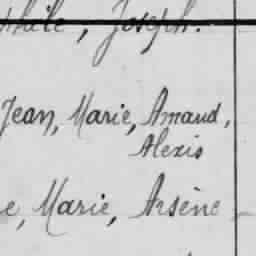 phile, Joseph.
Jean, Marie, Amand,
Alexis
e, Marie, Arsène